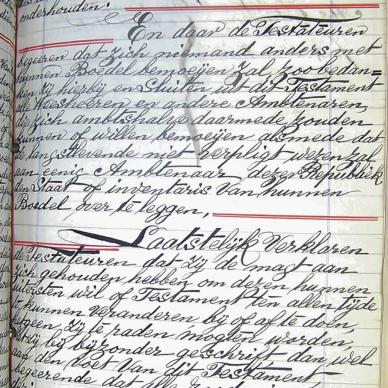 onderhouden.
En daar de Testateuren
begeeren dat zich niemand anders met
hunnen Boedel bemoeijen zal, zoo bedan=
ken zij hierbij en sluiten uit dit Testament
alle Weesheeren en andere Ambtenaren,
die zich ambtshalve daarmede zouden
kunnen of willen bemoeijen alsmede dat
de langstlevende niet verpligt wezen zal
aan eenig Ambtenaar dezer Republiek
den Staat of inventaris van hunnen
Boedel over te leggen.
Laatstelijk Verklaren
de Testateuren dat zij de magt aan
zich gehouden hebben om dezen hunnen
uitersten wil of Testament ten allen tijde
te kunnen veranderen bij of af te doen,
zij te raden mogten worden,
bij bijzonder geschrift dan wel
aan den voet van dit Testament
begeerende dat alle